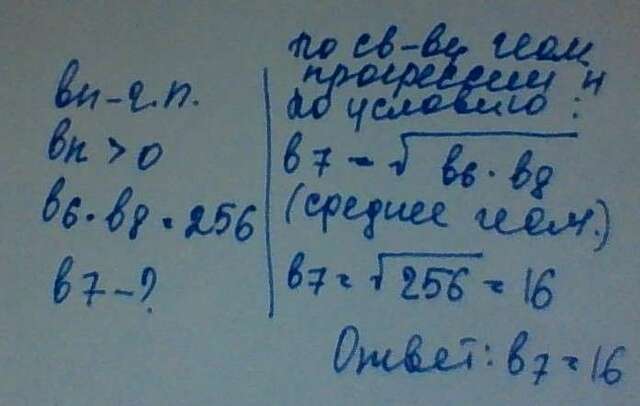 bn - г.п.
bn > 0
b6 · b8 = 256
b7 - ?
по св-ву геом.
прогрессии и
по условию :
b7 = √b6 · b8
(среднее геом.)
b7 = √256 = 16
Ответ: b7 = 16